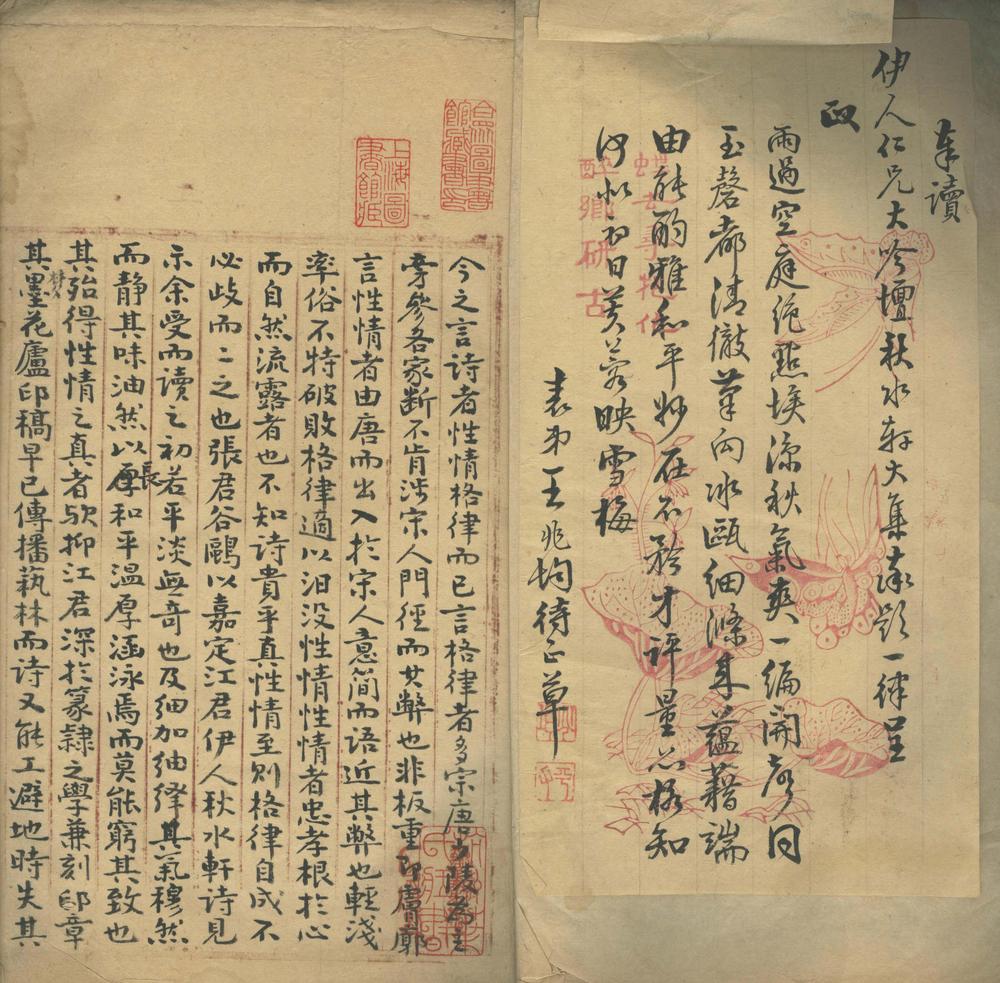 奉讀
伊人仁兄大吟壇秋水軒大集奉題一律呈
政
雨過空庭絕點埃涼秋氣爽一編開音同
玉磬都清徹筆向冰甌細滌來蘊藉端
由能酌雅和平妙在不矜才評量品格知
何似初日芙蓉映雪梅
表弟王兆均待正草
醉鄉研古
上海圖書館藏
今之言詩者性情格律而已言格律者多宗唐少陵為主
旁參各家斷不肯涉宋人門徑而其弊也非板重即膚廓
言性情者由唐而出入於宋人意簡而語近其弊也輕淺
率俗不特破敗格律適以汩没性情性情者忠孝根於心
而自然流露者也不知詩貴乎真性情至則格律自成不
必歧而二之也張君谷鷗以嘉定江君伊人秋水軒詩見
示余受而讀之初若平淡無奇也及細加紬繹其氣穆然
而静其味油然以長和平温厚涵泳焉而莫能窮其致也
其殆得性情之真者歟抑江君深於篆隸之學兼刻印章
其墨花廬印稿早已傳播藝林而詩又能工避地時失其